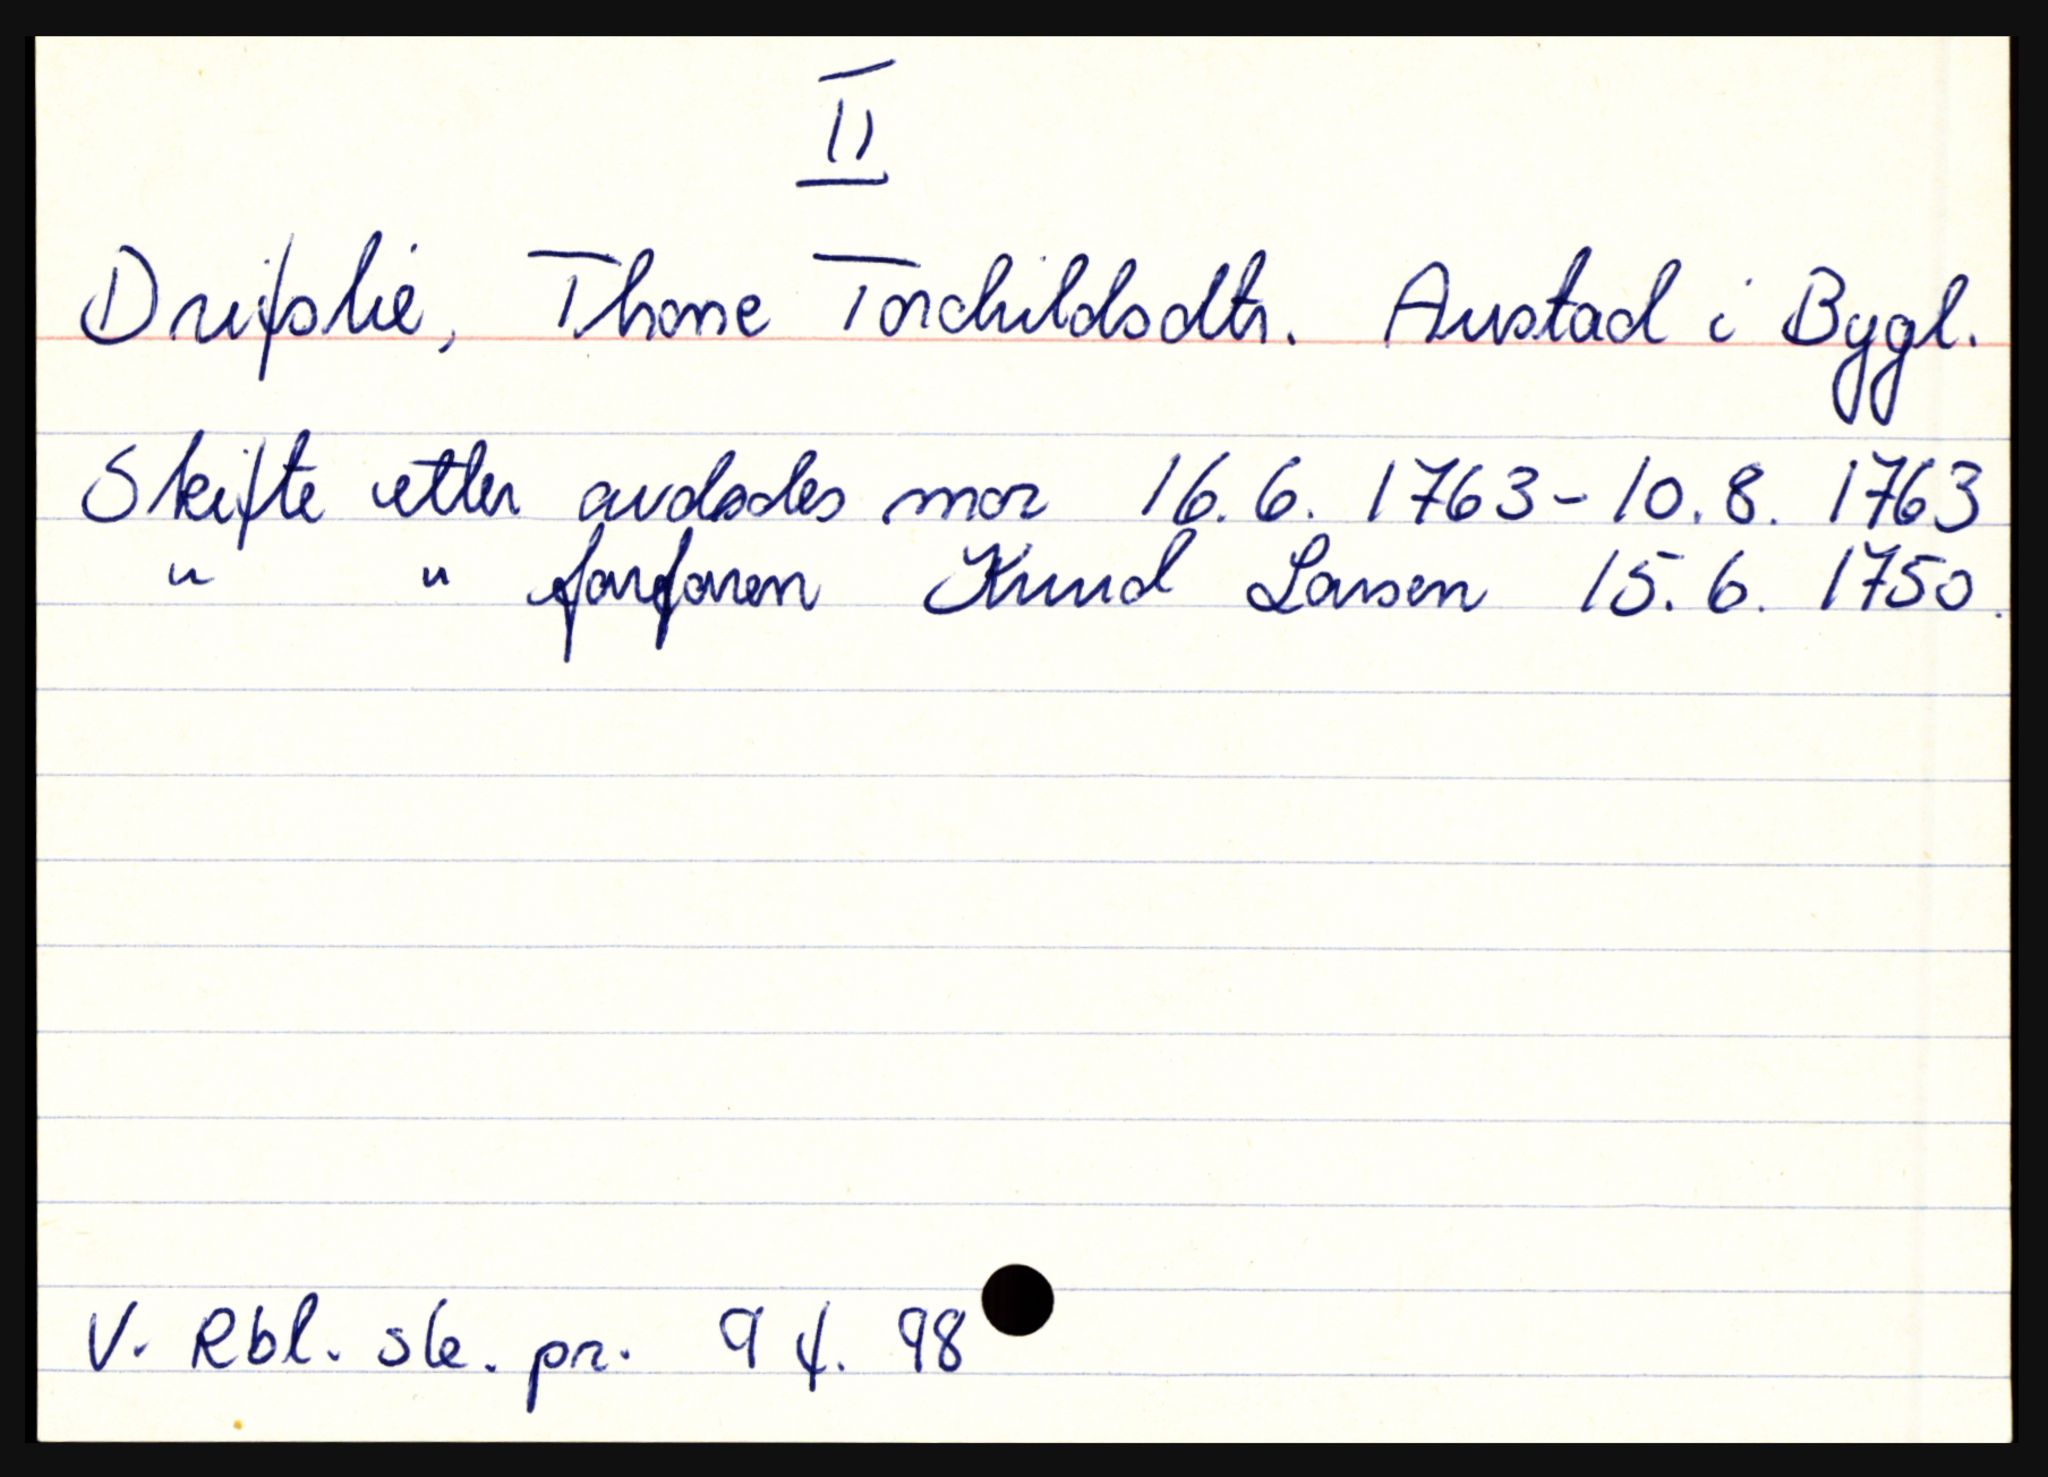 II
Drifslie, Thone Torchildsdtr. Austad i Bygl.
Skifte etter avdødes mor 16.6. 1763-10.8. 1763
" " farfaren Knud Larsen 15.6. 1750.
V. Rbl. sk. pr. 9 f. 98